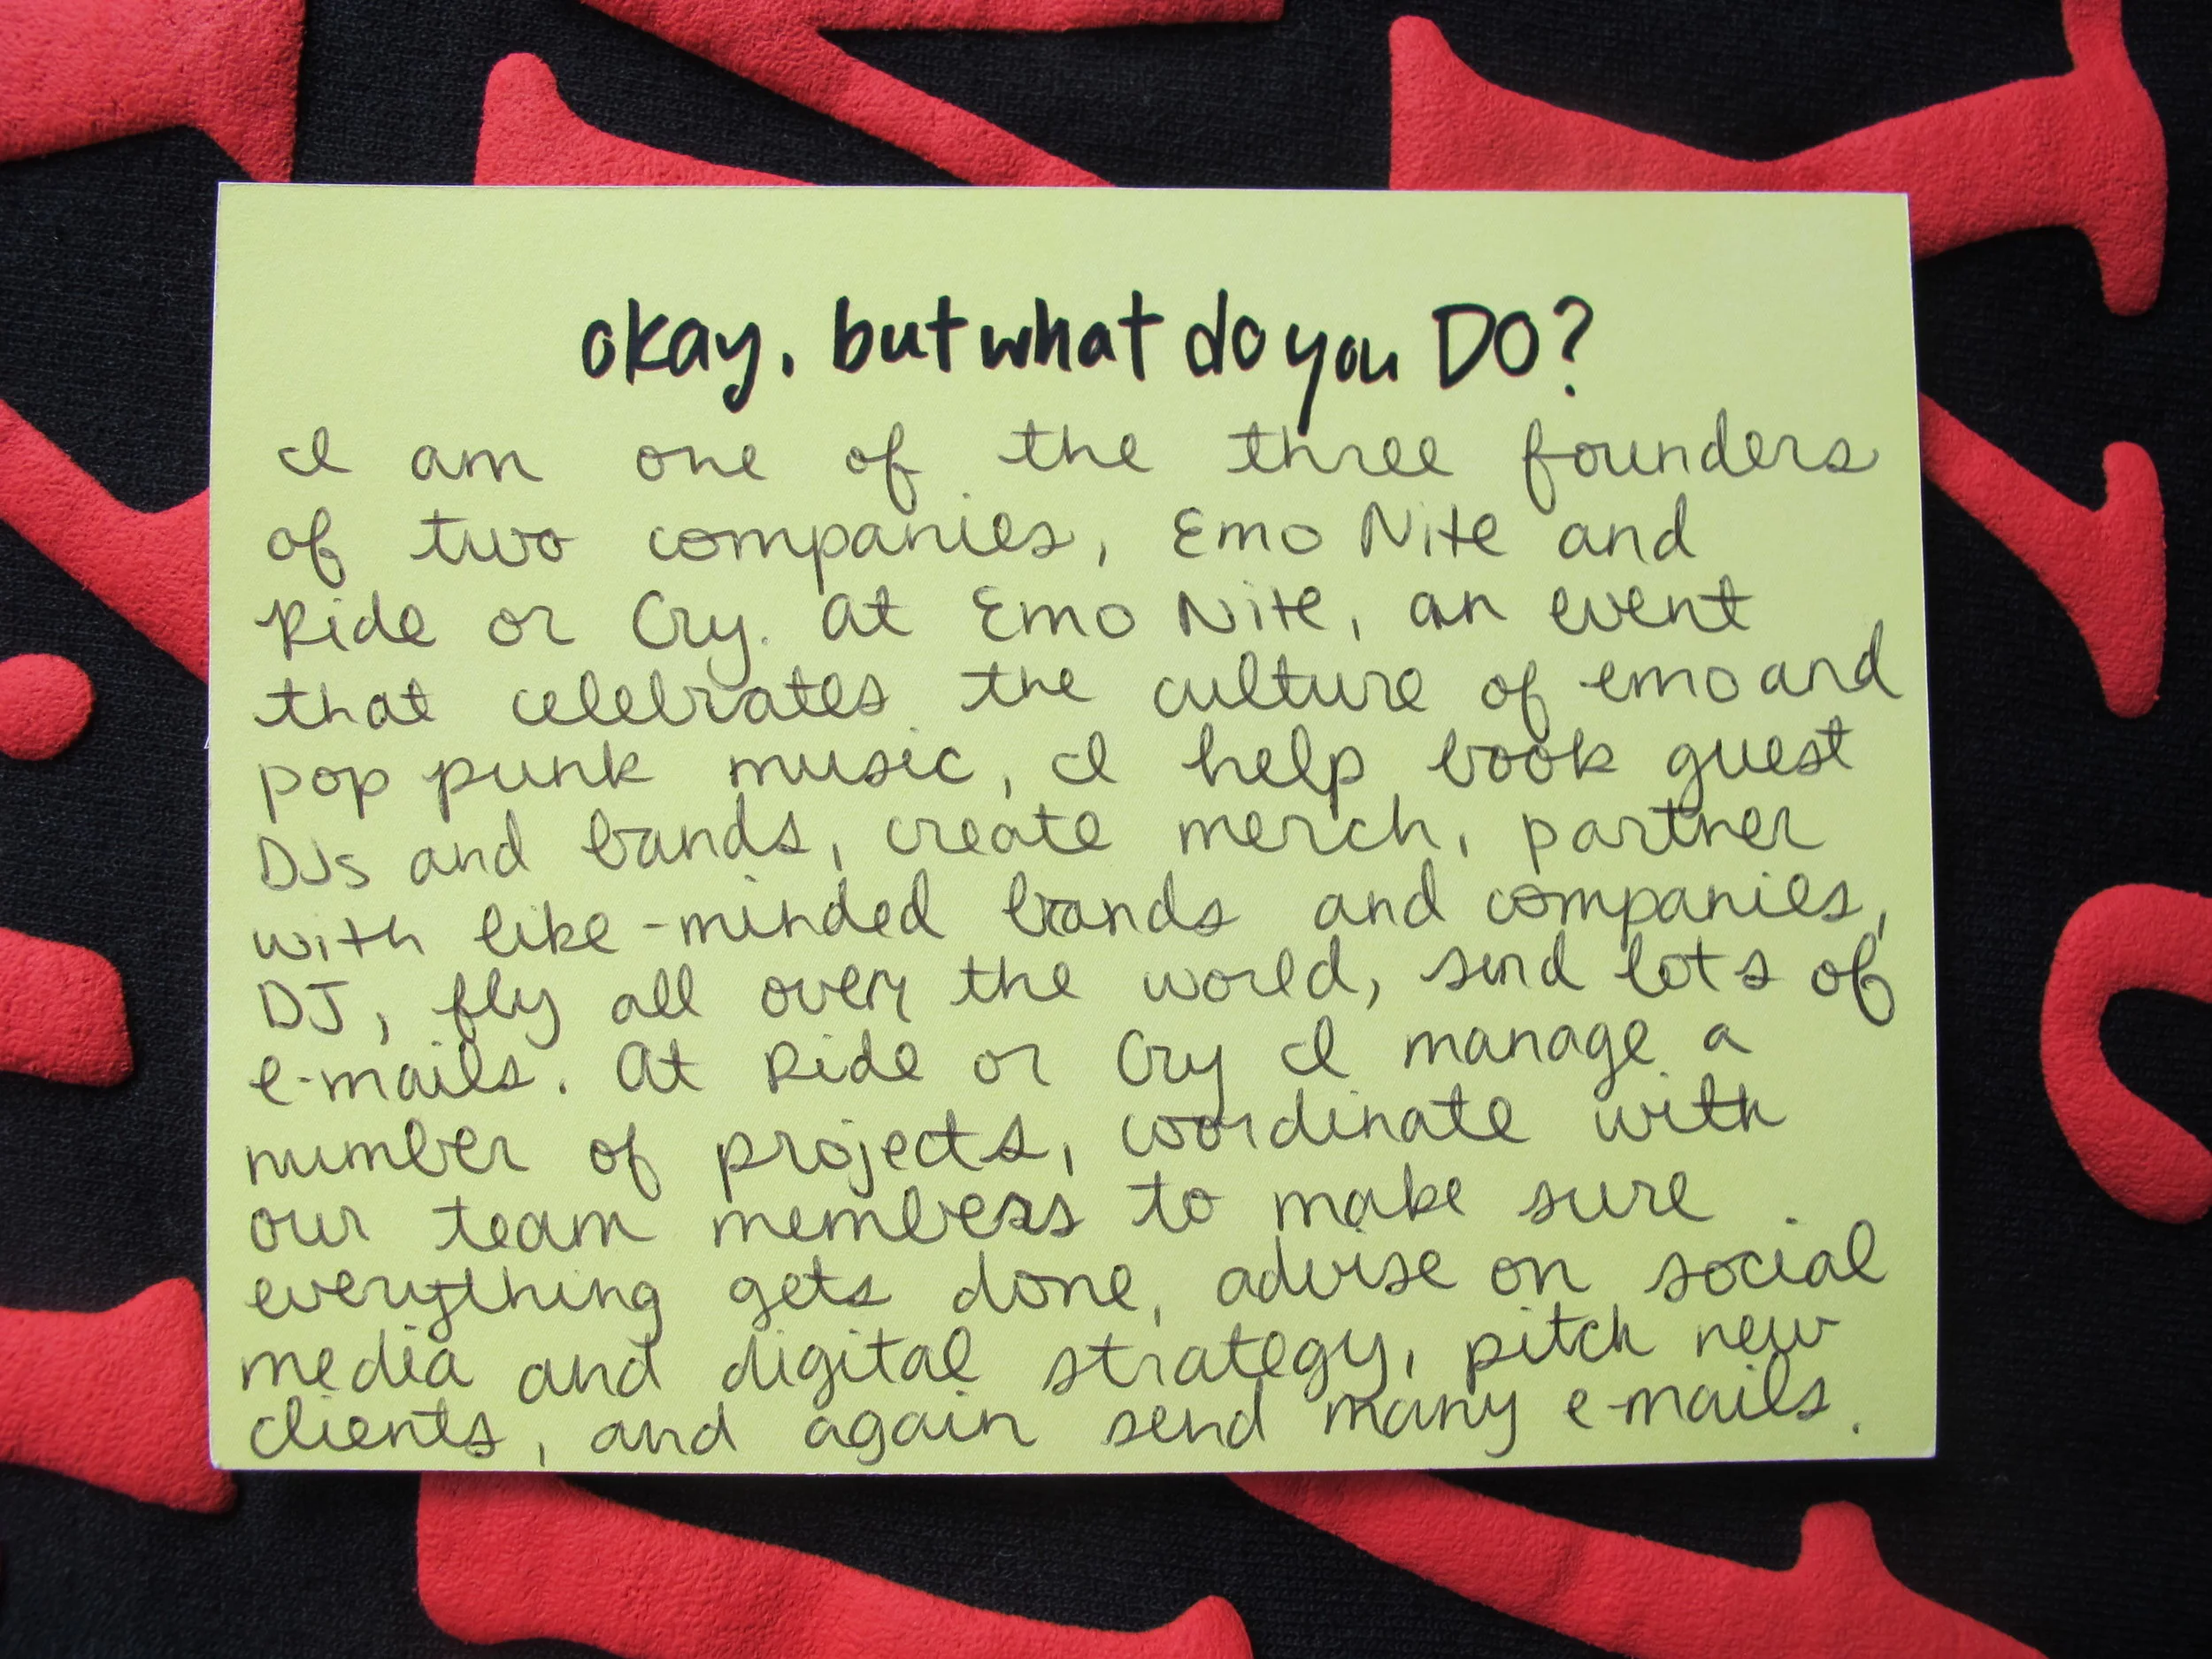 okay, but what do you DO?
I am one of the three founders
of two companies, Emo Nite and
Ride or Cry. At Emo Nite, an event
that celebrates the culture of emo and
pop punk music, I help book guest
DJs and bands, create merch, partner
with like-minded brands and companies,
DJ, fly all over the world, send lots of
e-mails. At Ride or Cry I manage a
number of projects, coordinate with
our team members to make sure
everything gets done, advise on social
media and digital strategy, pitch new
clients, and again send many e-mails.